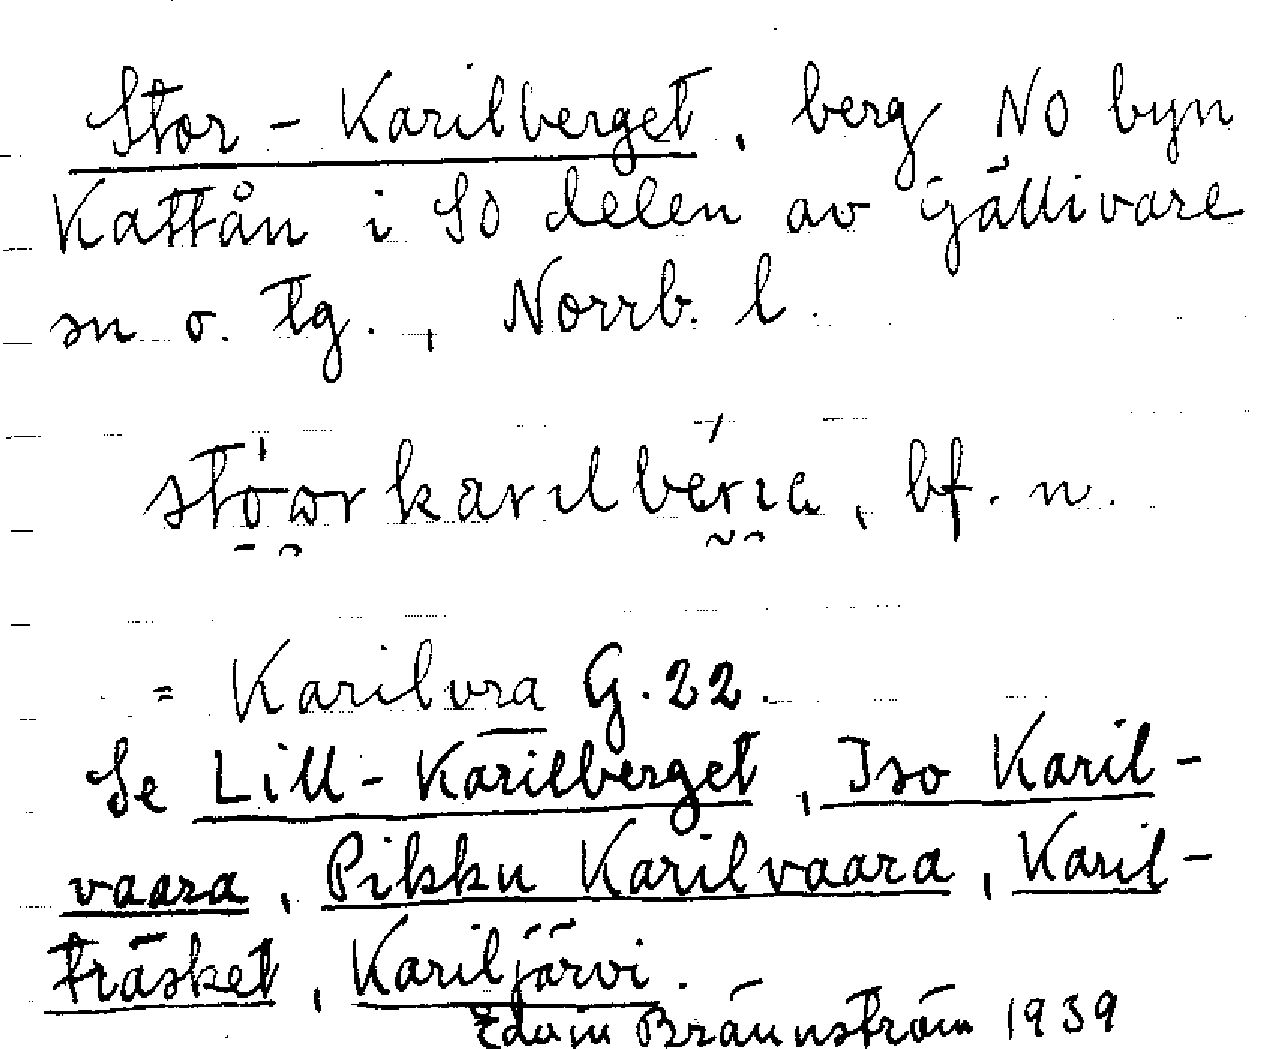 Stor-Karilberget, berg NO byn
Kattån i SO delen av Gällivare
sn o. tg., Norrb. l.
bf. n.
= Karilvra G. 22.
Se Lill-Karilberget, Iso Karil-
vaara, Pikku Karilvaara, Karil-
träsket, Kariljärvi.
Edvin Brännström 1939